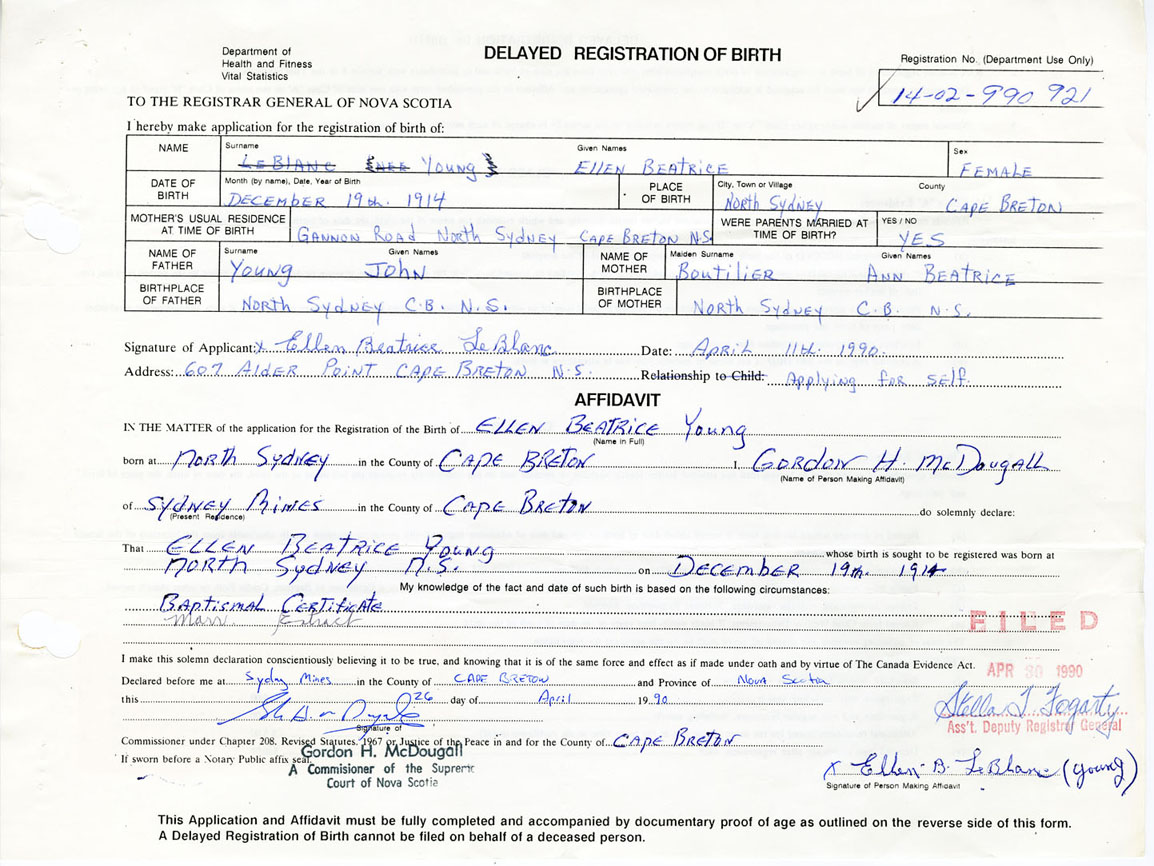 Department of
Health and Fitness
Vital Statistics
DELAYED REGISTRATION OF BIRTH
Registration No. (Department Use Only)
14-02-990 921
TO THE REGISTRAR GENERAL OF NOVA SCOTIA
I hereby make application for the registration of birth of:
NAME Surname LeBlanc (nee Young) Given Names Ellen Beatrice Sex Female
DATE OF BIRTH Month (by name), Date, Year of Birth December 19th. 1914 PLACE OF BIRTH City, Town or Village North Sydney County Cape Breton
MOTHER'S USUAL RESIDENCE AT TIME OF BIRTH Gannon Road North Sydney Cape Breton N.S. WERE PARENTS MARRIED AT TIME OF BIRTH? YES / NO YES
NAME OF FATHER Surname Young Given Names John NAME OF MOTHER Maiden Surname Boutilier Given Names Ann Beatrice
BIRTHPLACE OF FATHER North Sydney C.B. N.S. BIRTHPLACE OF MOTHER North Sydney C.B. N.S.
Signature of Applicant: x Ellen Beatrice LeBlanc Date: April 11th. 1990.
Address: 607 Alder Point Cape Breton N.S. Relationship to Child: Applying for self.
AFFIDAVIT
IN THE MATTER of the application for the Registration of the Birth of Ellen Beatrice Young
(Name in Full)
born at North Sydney in the County of Cape Breton I, Gordon H. McDougall
(Name of Person Making Affidavit)
of Sydney Mines in the County of Cape Breton do solemnly declare:
(Present Residence)
That Ellen Beatrice Young whose birth is sought to be registered was born at
North Sydney N.S. on December 19th. 1914
My knowledge of the fact and date of such birth is based on the following circumstances:
Baptismal Certificate
Marr. Extract
FILED
I make this solemn declaration conscientiously believing it to be true, and knowing that it is of the same force and effect as if made under oath and by virtue of The Canada Evidence Act.
APR 30 1990
Declared before me at Sydney Mines in the County of Cape Breton and Province of Nova Scotia
this 26 day of April 1990
Stella T Fogarty
Ass't. Deputy Registrar General
Signature of
Commissioner under Chapter 208, Revised Statutes, 1967 or Justice of the Peace in and for the County of Cape Breton
If sworn before a Notary Public affix seal.
Gordon H. McDougall
A Commisioner of the Supreme
Court of Nova Scotia
x Ellen B. LeBlanc (Young)
Signature of Person Making Affidavit
This Application and Affidavit must be fully completed and accompanied by documentary proof of age as outlined on the reverse side of this form.
A Delayed Registration of Birth cannot be filed on behalf of a deceased person.